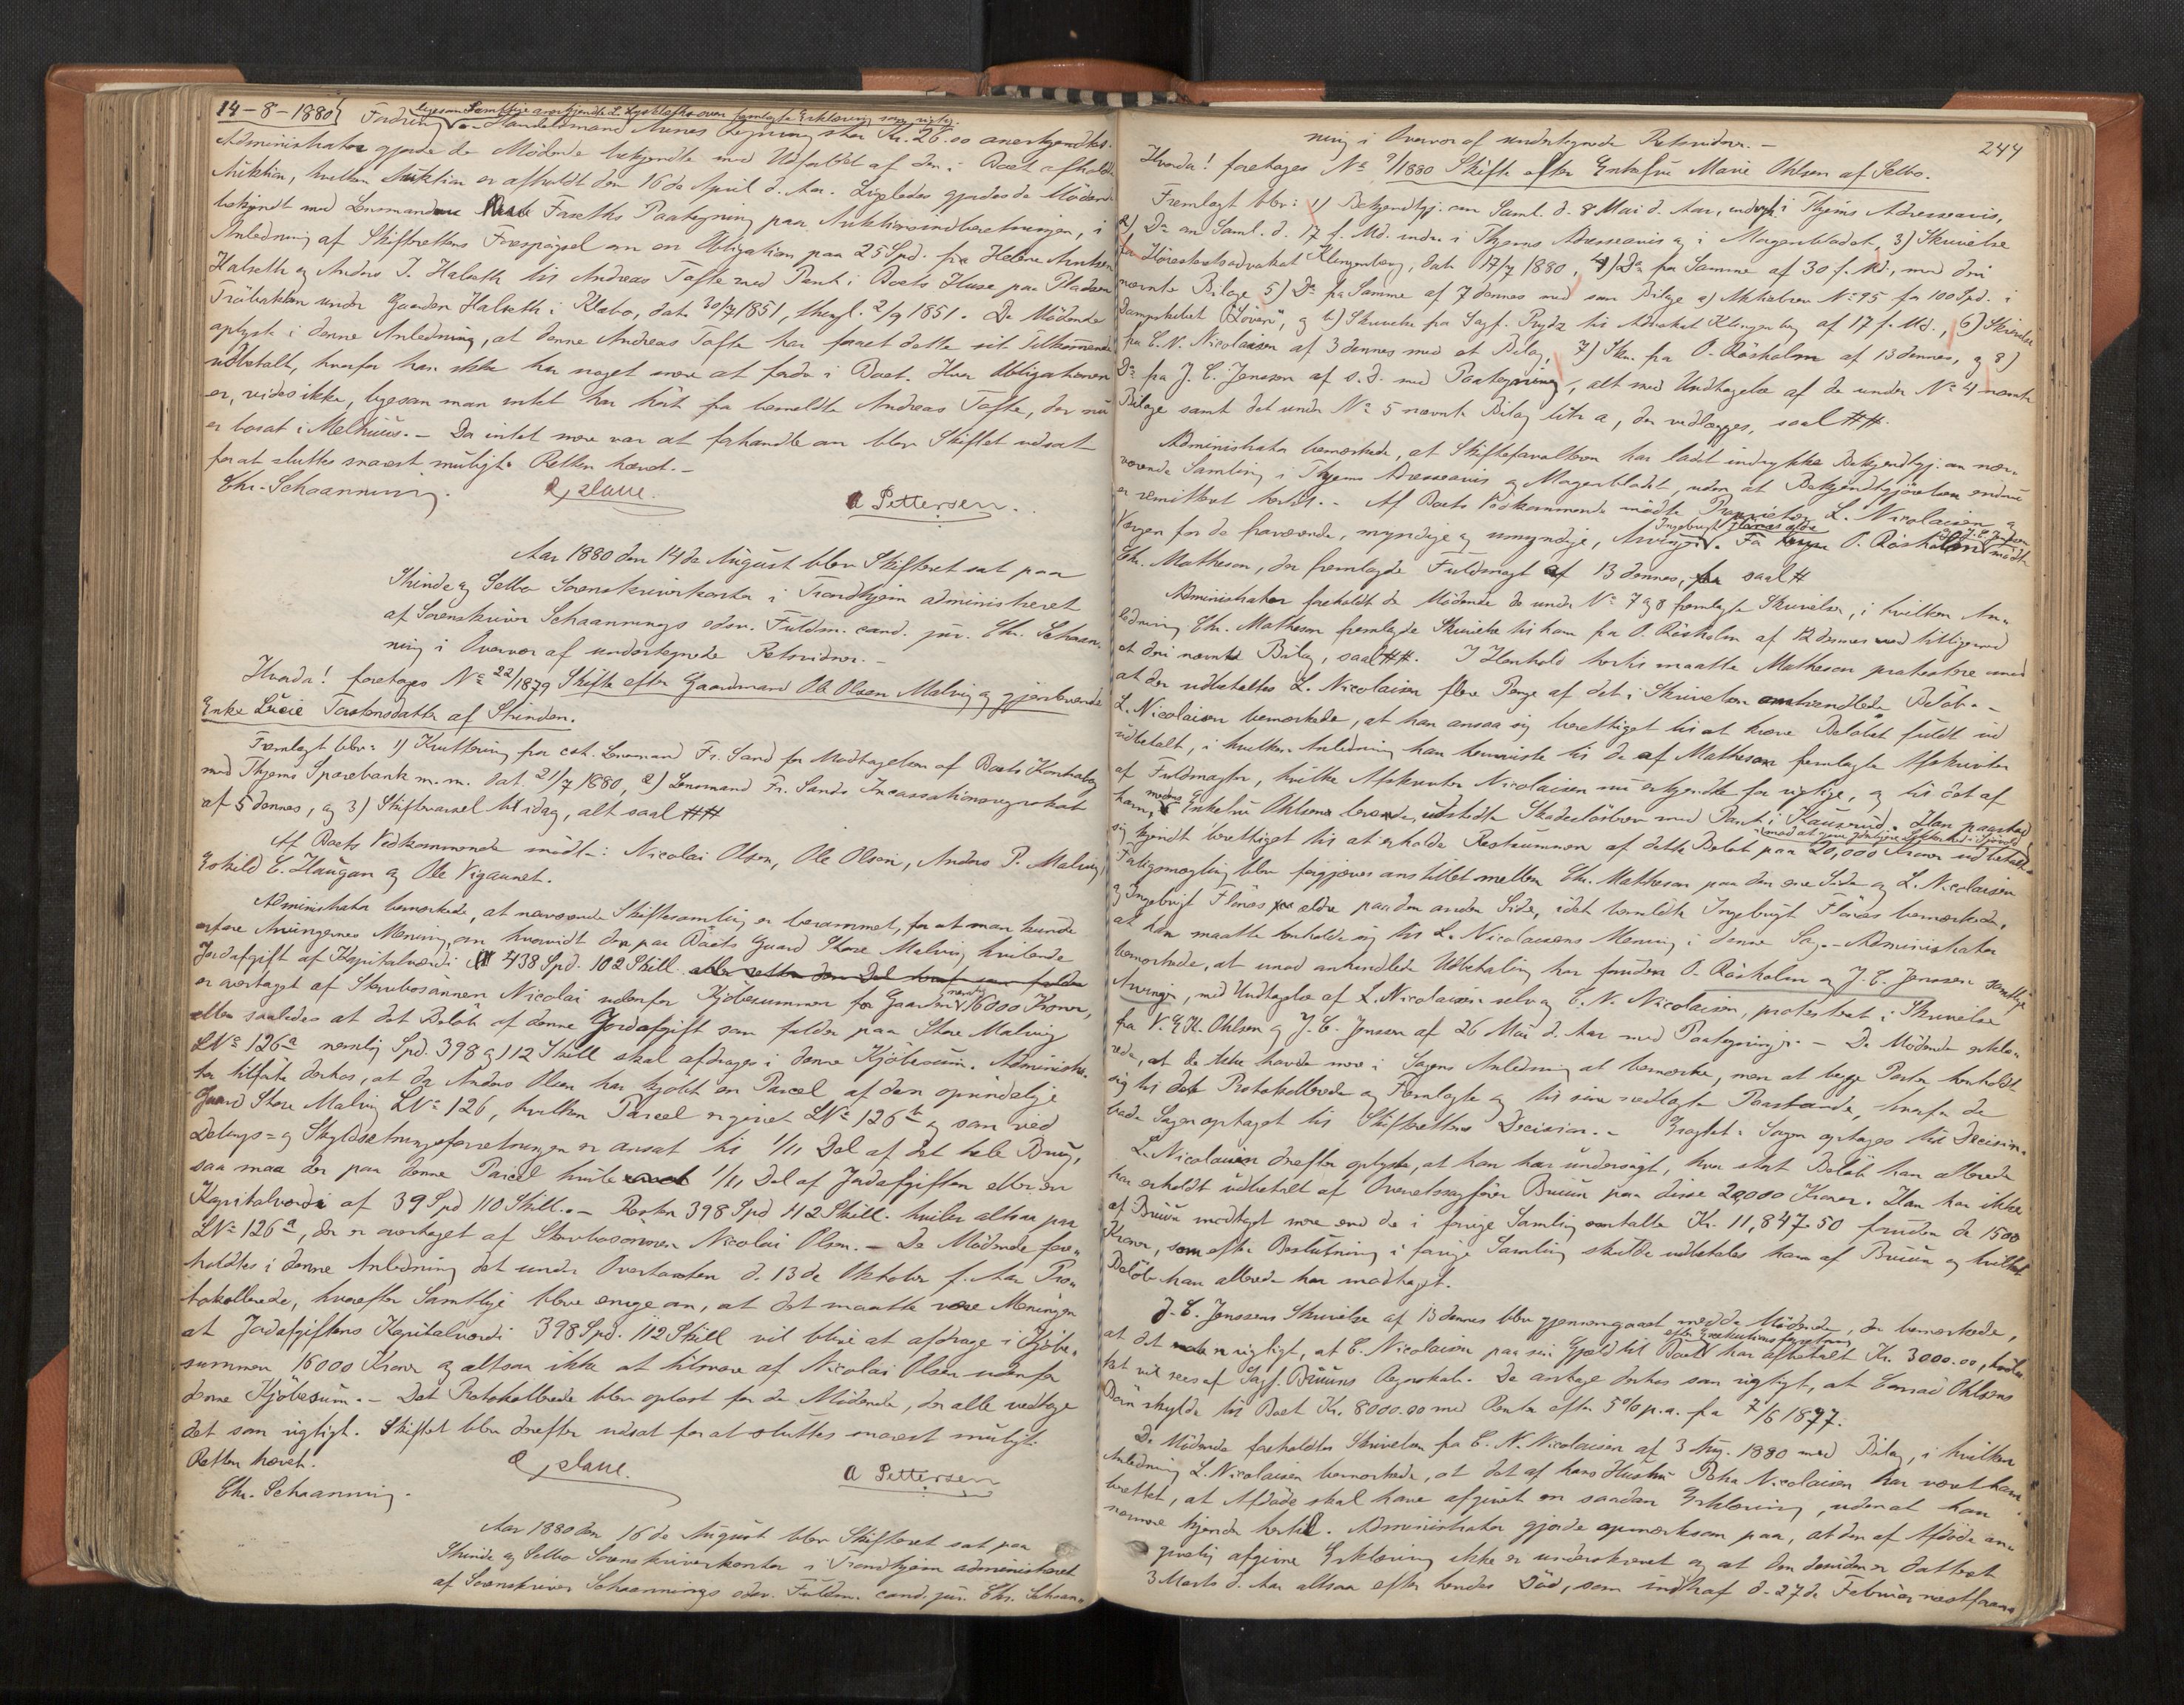 14-8-1880
ligesom Samtlige anerkjendte L. Lysklæths oven fremlagte Erklæring som rigtig.
Fordring Handelsmand Regning stor Kr. 26.00 anerkjendtes.
Administrator gjorde de Mødende bekjendte med Udfaldet af den i Boet afholdte
Auktion, hvilken Auktion er afholdt den 16de April d. Aar. Ligeledes gjordes de Mødende
bekjendt med Lensmand Faxeths Paategning paa Auktionsindberetningen, i
Anledning af Skifterettens Forespørgsel om en Obligation paa 25 Spd. fra Helene Arntsen
Halseth og Anders J. Halseth til Andreas Tofte med Pant i Boets Huse paa Pladsen
Tröbakken under Gaarden Halseth i Klæbo, dat. 30/7 1851, thingl. 2/9 1851. De Mødende
oplyste i denne Anledning, at denne Andreas Tofte har faaet dette sit Tilkommende
udbetalt, hvorfor han ikke har noget mere at fordre i Boet. Hvor Obligationen
er, vides ikke, ligesom man intet har hørt fra bemeldte Andreas Tofte, der nu
er bosat i Melhuus. - Da intet mere var at forhandle om blev Skiftet udsat
for at sluttes snarest muligt. Retten hævet. -
Chr. Schaanning.
A Pettersen.
Aar 1880 den 14de August blev Skifteret sat paa
Strinde og Selbo Sorenskriverkontor i Trondhjem administreret
af Sorenskriver Schaannings edsv. Fuldm. cand. jur. Chr. Schaan-
ning i Overvær af undertegnede Retsvidner. -
Hvorda! foretoges No 22/1879 Skifte efter Gaardmand Ole Olsen Malvig og gjenlevende
Enke Lucie Torstensdatter af Strinden.
Fremlagt blev: 1) Kvittering fra cst. Lensmand Fr. Sand for Modtagelsen af Boets Kontrabog
med Thjems Sparebank m. m. dat. 21/7 1880, 2) Lensmand Fr. Sands Incassationsregnskab
af 5 dennes, og 3) Skiftevarsel til idag, alt saal. ##
Af Boets Vedkommende mødte: Nicolai Olsen, Ole Olsen, Anders P. Malvig,
Eskild C. Haugan og Ole Vigaunet.
Administrator bemærkede, at nærværende Skiftesamling er berammet, for at man kunde
erfare Arvingernes Mening, om hvorvidt den paa Boets Gaard Store Malvig hvilende
Jordafgift af Kapitalværdi 438 Spd. 102 Skill. eller
er overtaget af Stervbosønnen Nicolai udenfor Kjöbesummen for Gaarden nemlig 16000 Kroner,
eller saaledes at det Beløb af denne Jordafgift som falder paa Store Malvig
LNo 126a nemlig Spd. 398 og 112 Skill skal afdrages i denne Kjöbesum. Administra-
tor tilførte derhos, at da Anders Olsen har kjøbt en Parcel af den oprindelige
Gaard Store Malvig LNo 126, hvilken Parcel er givet LNo 126b og som ved
Delings- og Skyldsætningsforretningen er ansat til 1/11 Del af det hele Brug,
saa maa der paa denne Parcel hvile 1/11 Del af Jordafgiften eller en
Kapitalværdi af 39 Spd 110 Skill. - Resten 398 Spd 112 Skill. hviler altsaa paa
LNo 126a, der er overtaget af Stervbosønnen Nicolai Olsen. - De Mødende fore-
holdtes i denne Anledning det under Overtaxten d. 13de Oktober f. Aar Pro-
tokollerede, hvorefter Samtlige bleve enige om, at det maatte være Meningen
at Jordafgiftens Kapitalværdi 398 Spd. 112 Skill vil blive at afdrage i Kjöbe-
summen 16000 Kroner og altsaa ikke at tilsvare af Nicolai Olsen udenfor
denne Kjöbesum. - Det Protokollerede blev oplæst for de Mødende, der alle vedtoge
det som rigtigt. Skiftet blev derefter udsat for at sluttes snarest muligt.
Retten hævet.
Chr. Schaanning.
A Pettersen
Aar 1880 den 16de August blev Skifteret sat paa
Strinde og Selbo Sorenskriverkontor i Trondhjem administreret
af Sorenskriver Schaannings edsv. Fuldm. cand. jur. Chr. Schaan-
244
ning i Overvær af undertegnede Retsvidner. -
Hvorda! foretoges No 9/1880 Skifte efter Enkefru Marie Ohlsen af Selbo.
Fremlagt blev: 1) Bekjendtgj. om Saml. d. 8 Mai d. Aar, indr. i Thjems Adresseavis,
2) Do om Saml. d. 17 f. Md. indr. i Thjems Adresseavis og i Morgenbladet, 3) Skrivelse
fra Høiesteretsadvokat Klingenberg, dat. 17/7 1880, 4) Do fra Samme af 30 f. Md., med deri
nævnte Bilage 5) Do fra Samme af 7 dennes med som Bilage a) Aktiebrev No 95 for 100 Spd. i
Dampskibet "Löven", og b) Skrivelse fra Sagf. Prydz til Advokat Klingenberg af 17 f. Md., 6) Skrivelse
fra C. N. Nicolaisen af 3 dennes med et Bilag, 7) Skr. fra O. Röskolm af 13 dennes, og 8)
Do fra J. C. Jenssen af s. d. med Paategning, alt med Undtagelse af de under No 4 nævnte
Bilage samt det under No 5 nævnte Bilag litr. a, der vedlægges, saal ##.
Administrator bemærkede, at Skifteforvalteren har ladet indrykke Bekjendtgj. om nær-
værende Samling i Thjems Adresseavis og Morgenbladet, uden at Bekjendtgjørelsen endnu
er remitteret hertil. - Af Boets Vedkommende mødte Proprietær L. Nicolaisen og
Ingebrigt Flønæs ældre og J. C. Jenssen
Værgen for de fraværende, myndige og umyndige, Arvinger. For O. Röskolm mødte
Chr. Matheson, der fremlagde Fuldmagt af 13 dennes, saal #
Administrator foreholdt de Mødende de under No 7 og 8 fremlagte Skrivelser, i hvilken An-
ledning Chr. Matheson fremlagde Skrivelse til ham fra O. Röskolm af 12 dennes med tilligemed
et deri nævnte Bilag, saal ##. I Henhold hertil maatte Matheson protestere imod
at der udbetaltes L. Nicolaisen flere Penge af det i Skrivelsen omhandlede Beløb. -
L. Nicolaisen bemærkede, at han ansaa sig berettiget til at kræve Beløbet fuldt ud
udbetalt, i hvilken Anledning han henviste til de af Matheson fremlagte Afskrifter
af Fuldmagter, hvilke Afskrifter Nicolaisen nu erkjendte for rigtige, og til det af
ham, medens Enkefru Ohlsen levede, udstedte Skadesløsbrev med Pant i Kausrud. Han paastod
mod at give
sig kjendt berettiget til at erholde Restsummen af dette Beløb paa 20,000 Kroner udbetalt.
Forligsmægling blev forgjæves anstillet mellem Chr. Matheson paa den ene Side og L. Nicolaisen
og Ingebrigt Flønæs ældre paa den anden Side, idet bemeldte Ingebrigt Flønæs bemærkede,
at han maatte henholde sig til L. Nicolaisens Mening i denne Sag. - Administrator
bemærkede, at imod omhandlede Udbetaling har foruden O. Röskolm og J. C. Jenssen samtlige
Arvinger, med Undtagelse af L. Nicolaisen selv og C. N. Nicolaisen, protesteret i Skrivelse
fra V. & K. Ohlsen og J. C. Jenssen af 26 Mai d. Aar med Paategninger. - De Mødende erklæ-
rede, at de ikke havde mere i Sagens Anledning at bemærke, men at begge Parter henholdt
sig til det Protokollerede og Fremlagte og til sine nedlagte Paastande, hvorfor de
bade Sagen optaget til Skifterettens Decision. - Eragtet: Sagen optages til Decision.
L. Nicolaisen derefter oplyste, at han har undersøgt, hvor stort Beløb han allerede
har erholdt udbetalt af Overretssagfører Bruun paa disse 20,000 Kroner. Han har ikke
af Bruun modtaget mere end de i forrige Samling omtalte Kr. 11,847.50 foruden de 1500
Kroner, som efter Beslutning i forrige Samling skulde udbetales ham af Bruun og hvilket
Beløb han allerede har modtaget.
J. C. Jenssens Skrivelse af 13 dennes blev gjennemgaaet med de Mødende, der bemærkede,
efter Exekutionsforretning
at det er rigtigt, at C. Nicolaisen paa sin Gjæld til Boet har afbetalt Kr. 3000.00, hvilket
lat vil sees af Sagf. Bruuns Regnskab. De antoge derhos som rigtigt, at Conrad Ohlsens
Börn skylde til Boet Kr. 8000.00 med Renter efter 5% p.a. fra 7/6 1877.
De Mødende foreholdtes Skrivelsen fra C. N. Nicolaisen af 3 Aug. 1880 med Bilag, i hvilken
Anledning L. Nicolaisen bemærkede, at det af hans Hustru Petra Nicolaisen har været ham
berettet, at Afdøde skal have afgivet en saadan Erklæring, uden at han
nærmere kjender hertil. Administrator gjorde opmærksom paa, at den af Afdøde an-
givelig afgivne Erklæring ikke er underskrevet og at den desuden er dateret
3 Marts d. Aar altsaa efter hendes Død, som indtraf d. 27de Februar næstforan-